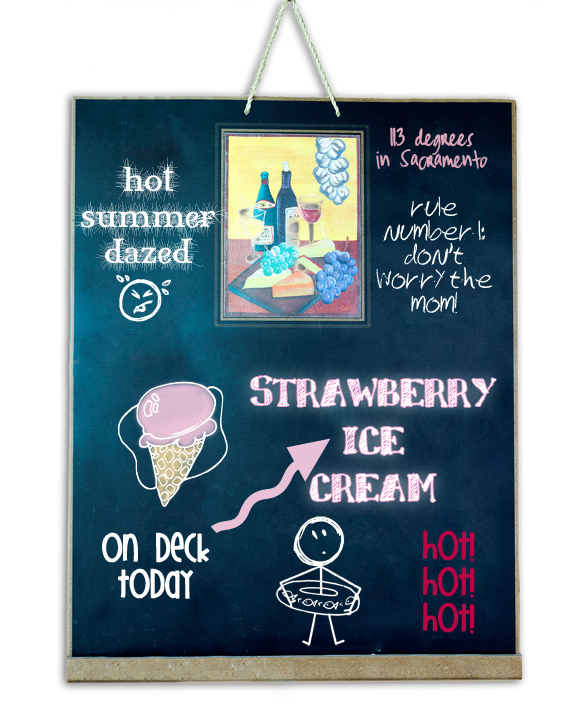 hot
summer
dazed
113 degrees
in Sacramento
rule
number 1:
don't
worry the
mom!
STRAWBERRY
ICE
CREAM
ON DECK
TODAY
HOT!
HOT!
HOT!